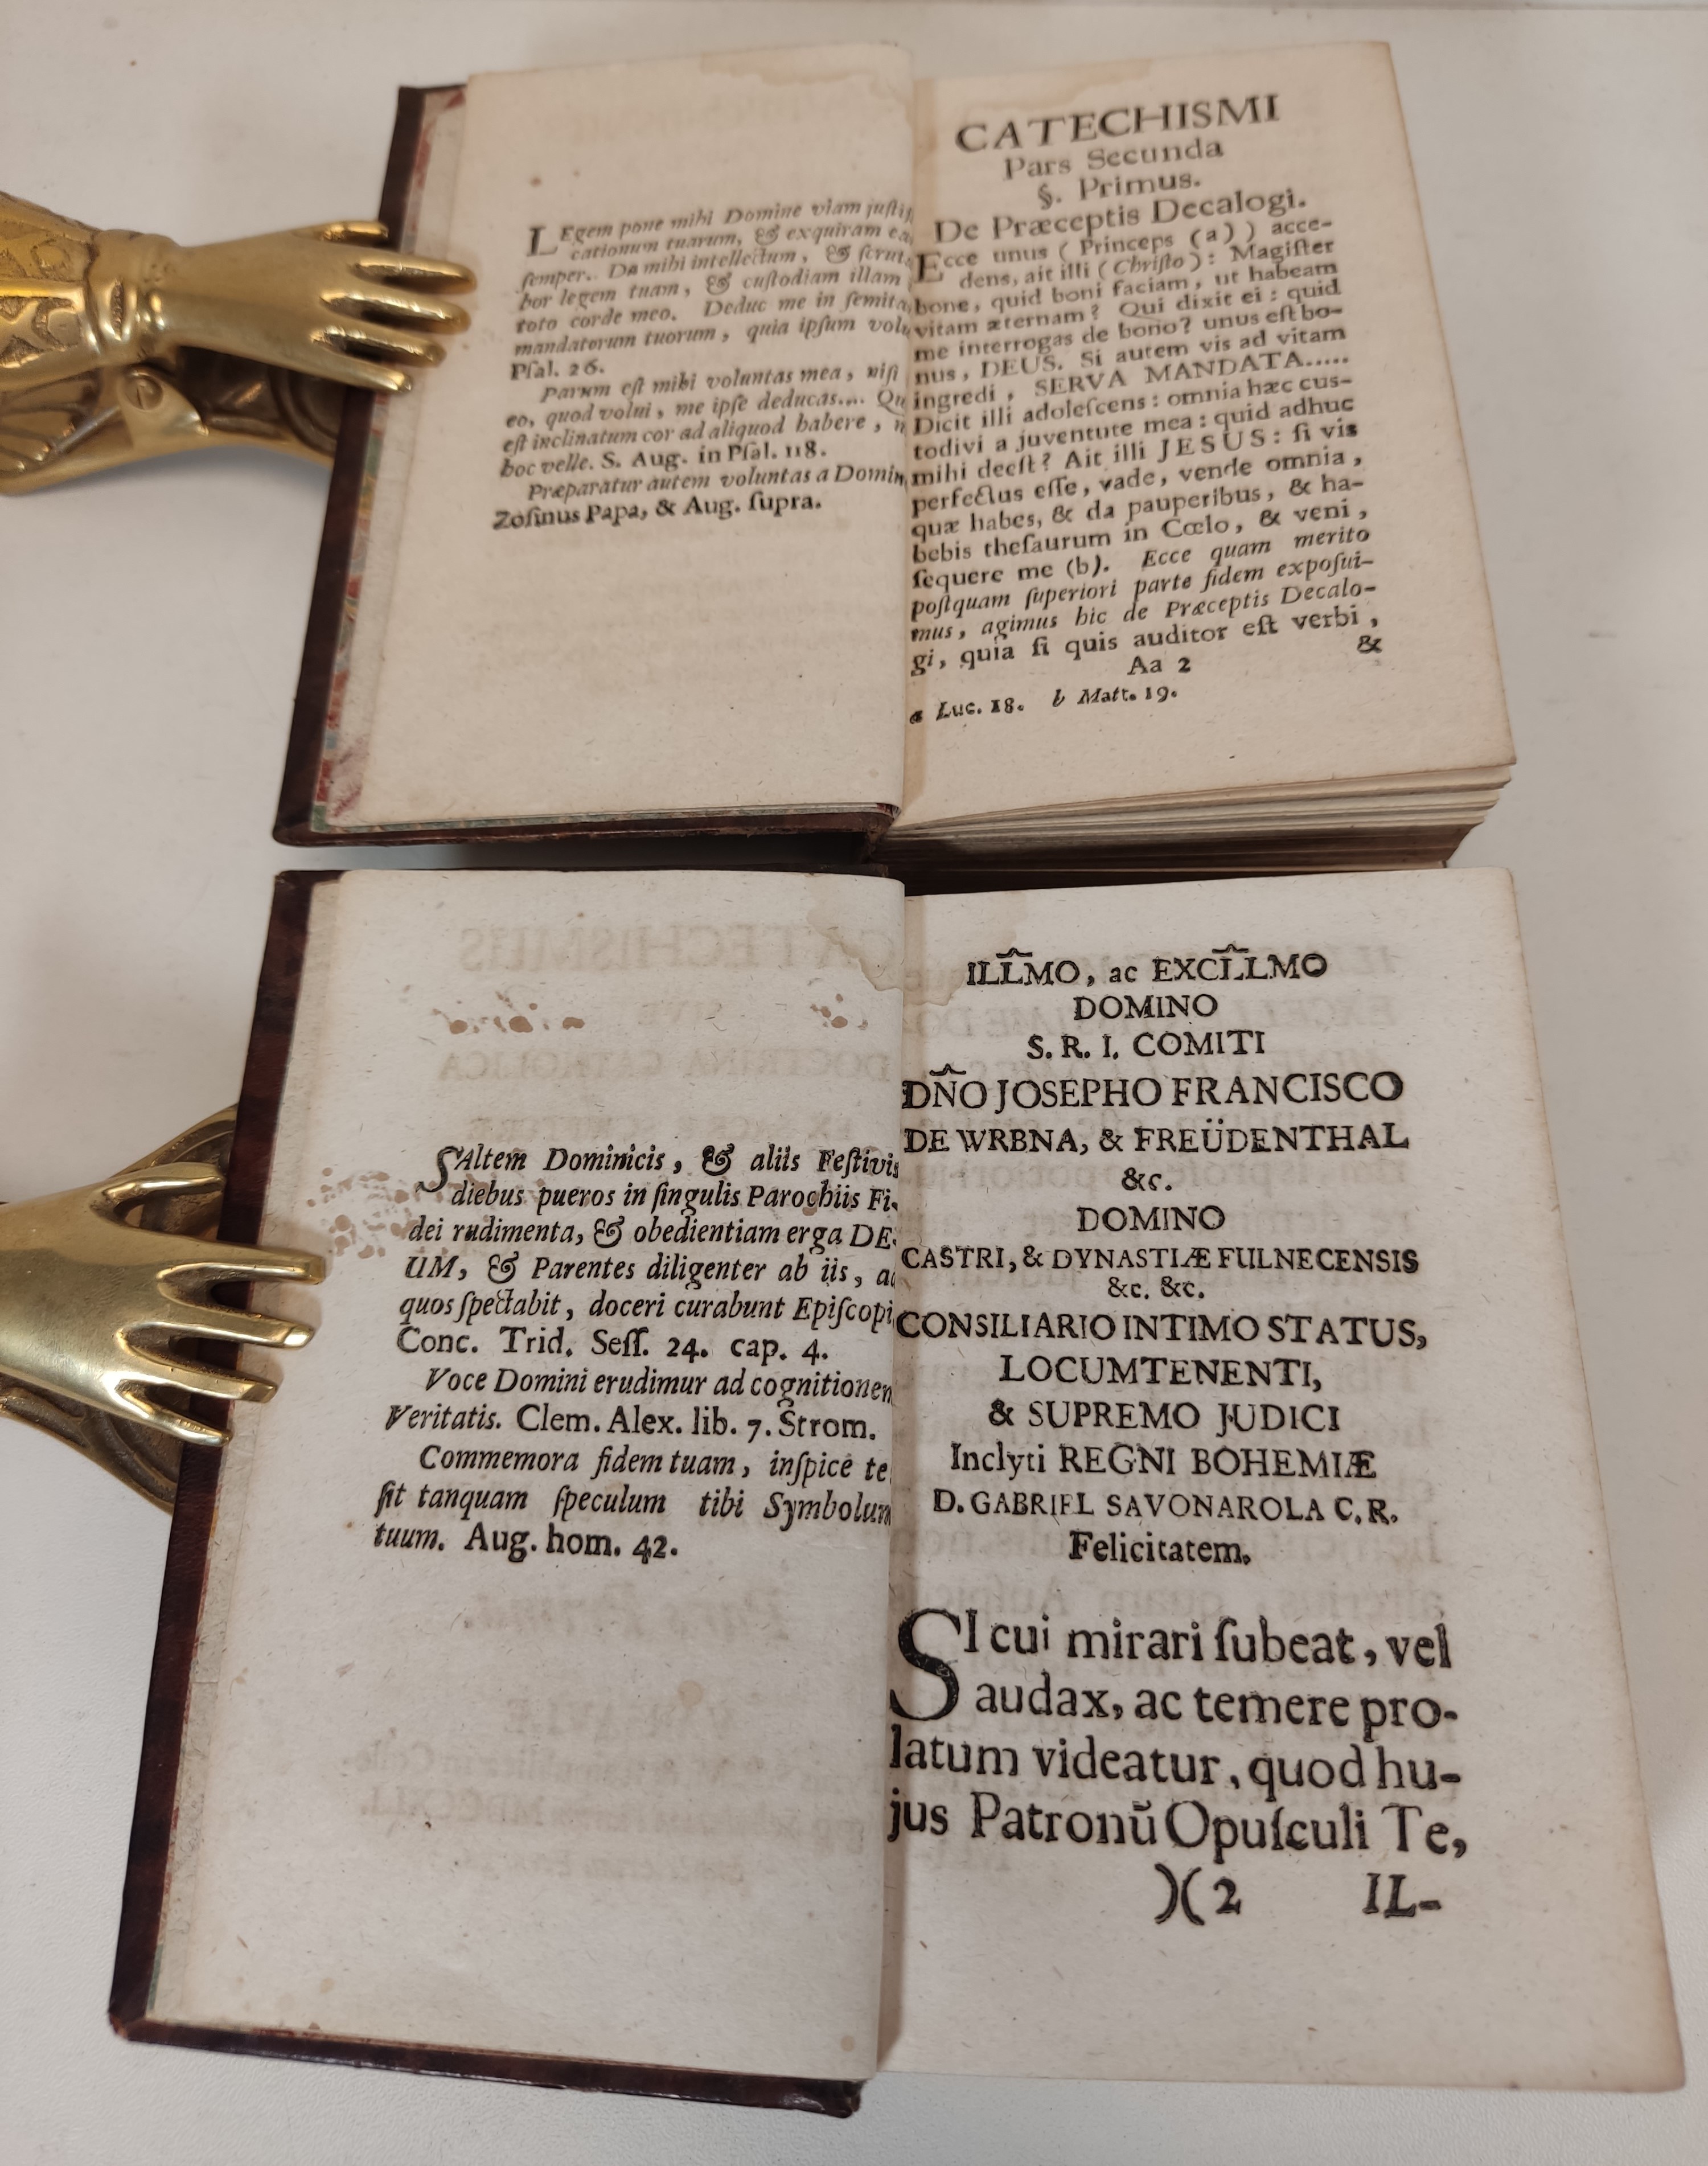 LEgem pone mihi Domine viam justifi
cationum tuarum, & exquiram ea
semper. Da mihi intellectum, & scrut
bor legem tuam, & custodiam illam
toto corde meo. Deduc me in semita
mandatorum tuorum, quia ipsum volu
Psal. 26.
Parum est mihi voluntas mea, nisi
eo, quod volui, me ipse deducas.... Qu
est inclinatum cor ad aliquod habere, n
hoc velle. S. Aug. in Psal. 118.
Præparatur autem voluntas a Domin
Zosinus Papa, & Aug. supra.
CATECHISMI
Pars Secunda
§. Primus.
De Præceptis Decalogi.
Ecce unus (Princeps (a)) acce-
dens, ait illi (Christo): Magister
bone, quid boni faciam, ut habeam
vitam æternam? Qui dixit ei: quid
me interrogas de bono? unus est bo-
nus, DEUS. Si autem vis ad vitam
ingredi, SERVA MANDATA.....
Dicit illi adolescens: omnia hæc cus-
todivi a juventute mea: quid adhuc
mihi deest? Ait illi JESUS: si vis
perfectus esse, vade, vende omnia,
quæ habes, & da pauperibus, & ha-
bebis thesaurum in Cœlo, & veni,
sequere me (b). Ecce quam merito
postquam superiori parte fidem exposui-
mus, agimus hic de Præceptis Decalo-
gi, quia si quis auditor est verbi,
Aa 2 &
a Luc. 18. b Matt. 19.
SAltem Dominicis, & aliis Festivis
diebus pueros in singulis Parochiis Fi-
dei rudimenta, & obedientiam erga DE-
UM, & Parentes diligenter ab iis, ad
quos spectabit, doceri curabunt Episcopi
Conc. Trid. Sess. 24. cap. 4.
Voce Domini erudimur ad cognitionem
Veritatis. Clem. Alex. lib. 7. Strom.
Commemora fidem tuam, inspice te
sit tanquam speculum tibi Symbolum
tuum. Aug. hom. 42.
ILL̂MO, ac EXCL̂LMO
DOMINO
S. R. I. COMITI
DN̂O JOSEPHO FRANCISCO
DE WRBNA, & FREÜDENTHAL
&c.
DOMINO
CASTRI, & DYNASTIÆ FULNECENSIS
&c. &c.
CONSILIARIO INTIMO STATUS,
LOCUMTENENTI,
& SUPREMO JUDICI
Inclyti REGNI BOHEMIÆ
D. GABRIEL SAVONAROLA C. R.
Felicitatem.
SI cui mirari subeat, vel
audax, ac temere pro-
latum videatur, quod hu-
jus Patronũ Opusculi Te,
)( 2 IL-